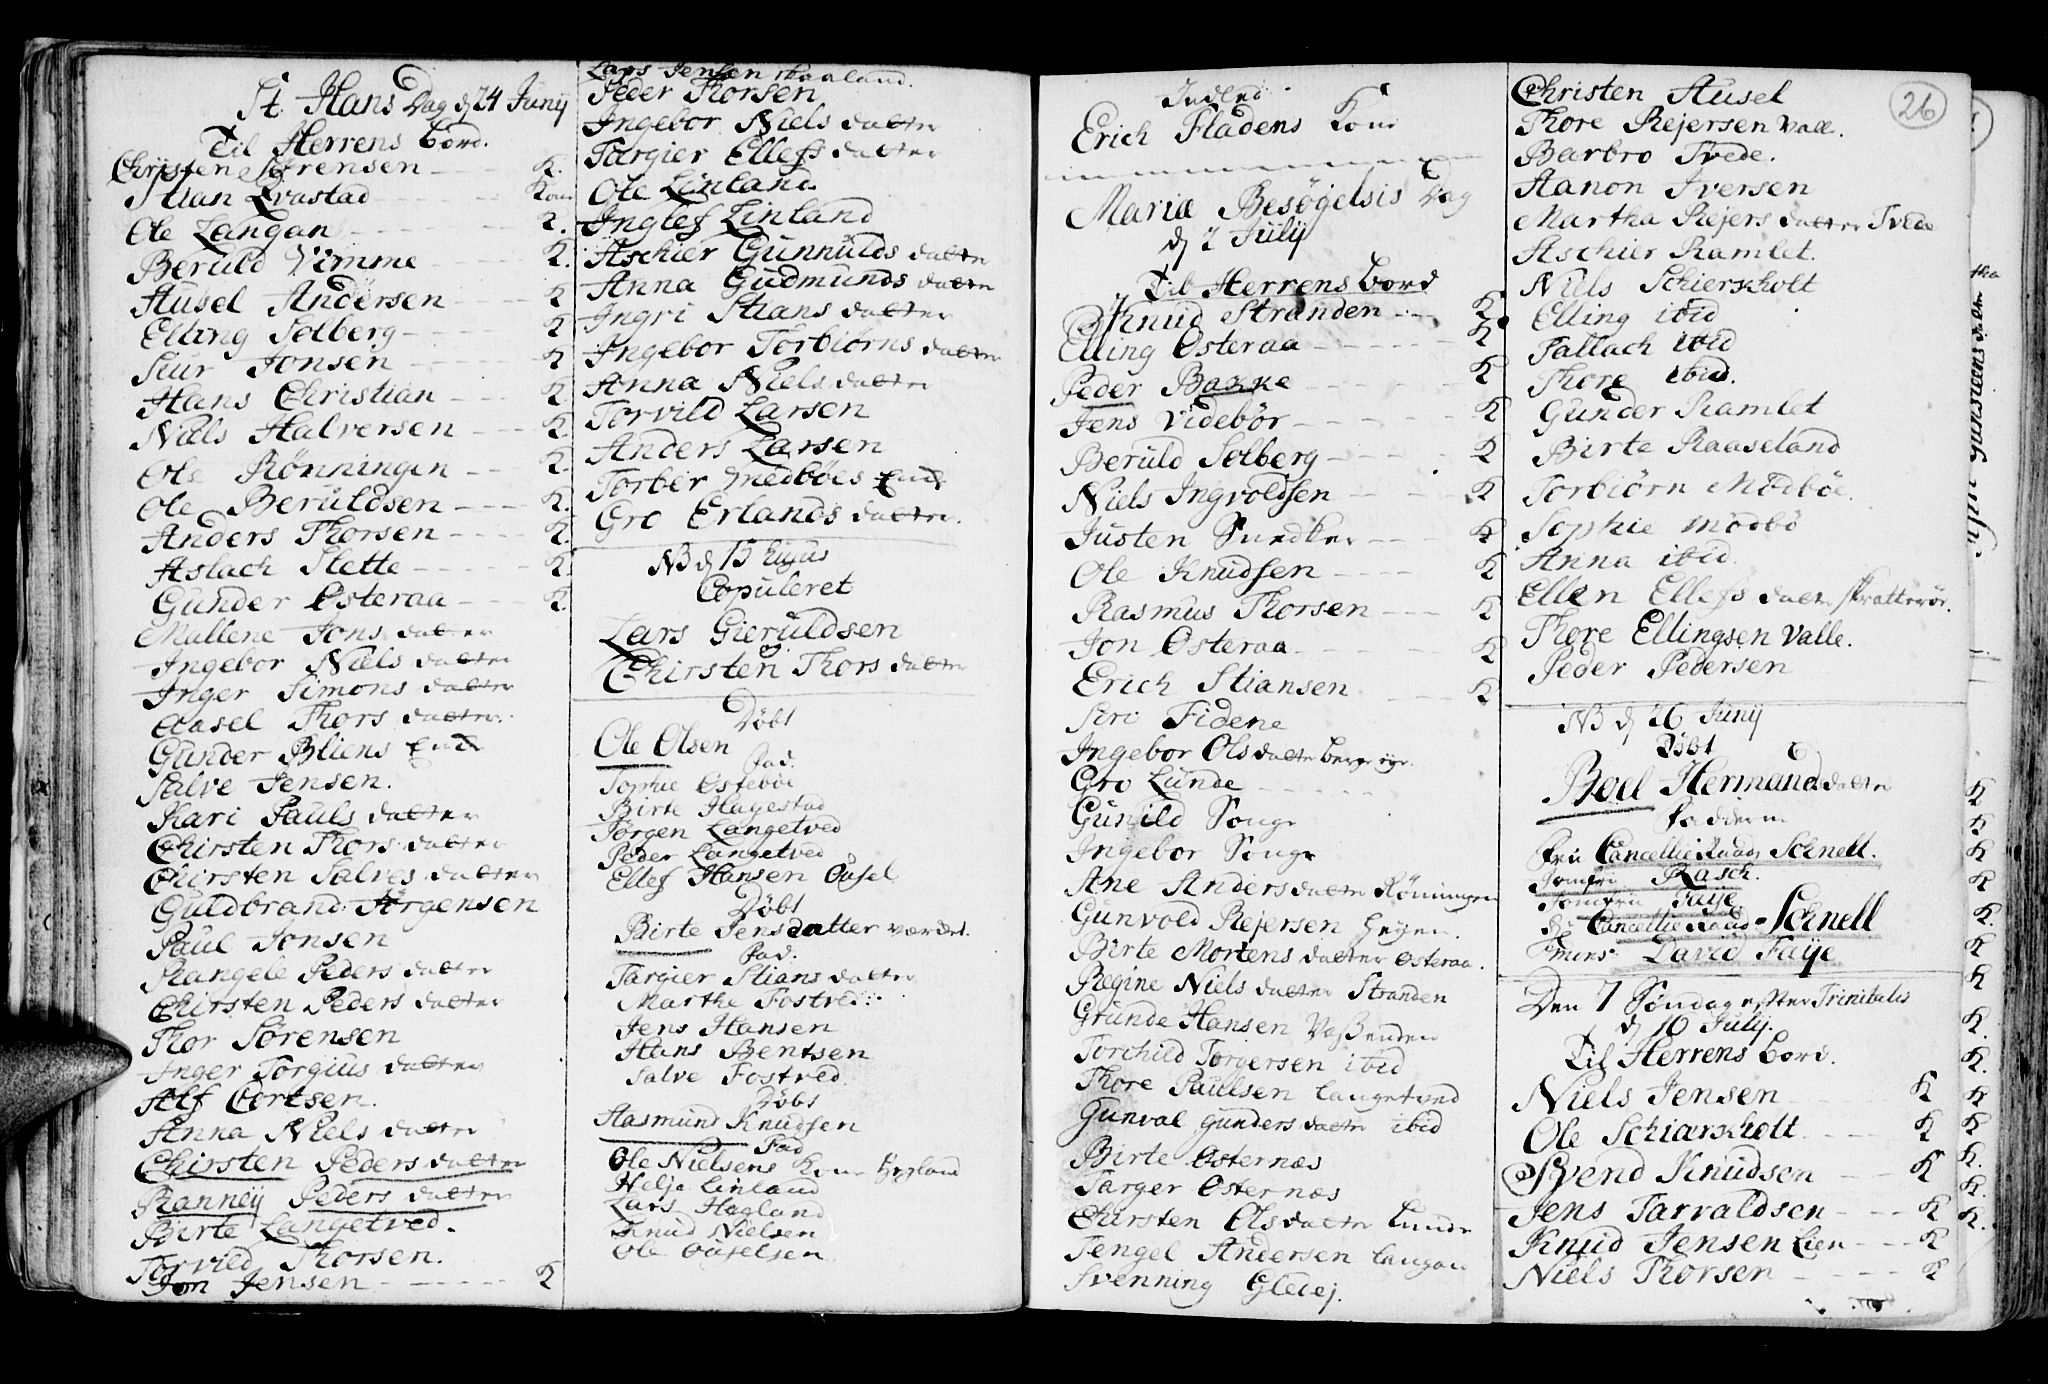 St. Hans Dag d 24 Junij
Til Herrens bord.
Christen Sørensen K.
Stian Qvastad Kone
Ole Langan K.
Beruld Vimme K.
Ausel Andersen K
Elling Solberg K
Siur Jonsen K
Hans Christian K
Niels Halversen K
Ole Rønningen K.
Ole Beruldsen K.
Anders Thorsen K.
Aslach Slette K.
Gunder Osteraa K.
Mallene Jons datter
Ingebor Niels datter
Inger Simons datter
Aasel Thors datter
Gunder Bliens Enke
Salve Jensen.
Kari Pauls datter
Chirsten Thors datter
Chirsten Salves datter
Guldbrand Jørgensen
Paul Jonsen
Rangele Peders datter
Chirsten Peders datter
Thor Sørensen
Inger Torgius datter
Alf Cortsen.
Anna Niels datter
Chirsten Peders datter
Ranneij Peders datter
Birte Langetved.
Torvild Thorsen.
Jon Jensen K
Lars Jensen
Peder Thorsen
Ingebor Niels datter
Targier Ellefs datter
Ole Linland
Inglef Linland
Aschier Gunnulds datter
Anna Gudmunds datter
Ingri Stians datter
Ingebor Torbiorns datter
Anna Niels datter
Torvild Larsen
Anders Larsen
Torber Medbøes Enke
Gro Erlands datter.
NB d 15
Copuleret
Lars Gieruldsen
Chirsten Thors datter
Døbt
Ole Olsen
Fad.
Sophie Ostebøe
Birte Hagestad
Jørgen Langetved
Peder Langetved
Ellef Hansen Ousel
Døbt
Birte Jensdatter
Fad.
Targier Stians datter
Marthe Fostved
Jens Hansen
Hans Bentsen
Salve Fostved
Døbt
Aasmund Knudsen
Fad
Ole Nielsens Kone Hegland
Helje Linland
Lars Hagland
Knud Nielsen
Ole Ouselsen
Indled
Erich Fladens Kone
Mariæ Besøgelsis Dag
d 2 Julij
Til Herrens bord
Knud Stranden K
Elling Osteraa K
Peder Bakke K
Jens Videbør K
Beruld Solberg K
Niels Ingvoldsen K
Justen Snedker K
Ole Knudsen K
Rasmus Thorsen K
Jon Osteraa K
Erich Stiansen K
Siri Fidene
Ingebor Olsdatter
Gro Lunde
Gunild Songe
Ingebor Songe
Ane Anders datter Rønningen
Gunvold Rejersen
Birte Mortens datter Osteraa.
Regine Niels datter Stranden
Grunde Hansen Vaßenden
Torchild Torgersen ibid
Thore Paulsen Langetved
Gunval Gunders datter ibid
Birte Osternæs
Targer Osternæs
Chirsten Olsdatter Lunde
Tengel Andersen Langan
Svenning Glelej.
26
Christen Ausel
Thore Rejersen Valle.
Barbro Tvede.
Aanon Iversen
Martha Rejers datter Tvede
Aschier Ramlet.
Niels Schierskolt
Elling ibid
Tallach ibid
Thore ibid.
Gunder Ramlet
Birte Raaseland
Torbiørn Modbøe.
Sophie Modbø
Anna ibid
Ellen Ellefs datter
Thore Ellingsen Valle.
Peder Pedersen
NB d 26 Junij
Døbt
Boel Hermandsdatter
Fadderne
Fru Cancellie Raad Schnell.
Jomfru Rasch.
Jomfru Faije.
Hr Cancellie Raad Schnell
David Faije
Den 7 Søndag effter Trinitatis
d 10 Julij.
Til Herrens bord.
Niels Jensen K
Ole Schiærskolt K
Svend Knudsen K
Jens Tarvaldsen K
Knud Jensen Lien K
Niels Thorsen K